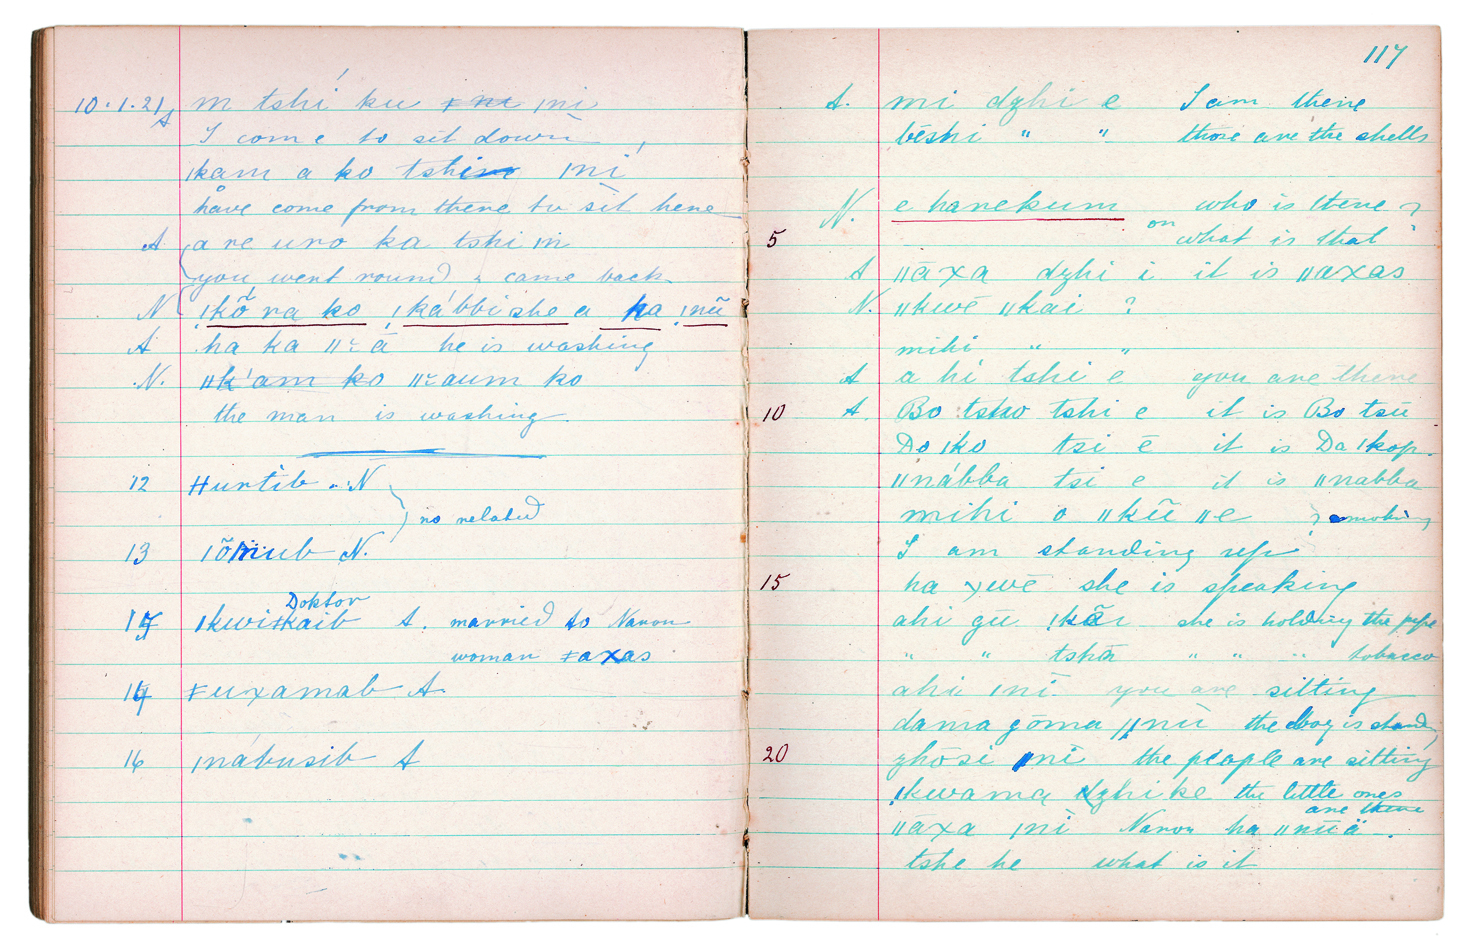 10.1.21 A m tshi ku ǂ ni ǀni
I come to sit down,
ǀkam a ko tshi ǀni
have come from there to sit here
A a re uro ka tshi ǀn
you went round & came back
N ǃkõ ra ko ǃkábbi she a ha ǃnũ
A ha ka ǁ ā he is washing
N. ǁk'am ko ǁ aum ko
the man is washing
12 N
no related
13 N.
Doktor
ǀkwiǂkaib A. married to Naron
woman ǂaxas
14 ǂuxamab A
16 ǀnábusib A
117
A. mi dzhi e I am there
bēshi " " those are the shells
N. e hanekum who is there?
5 or what is that?
A ǁāxa dzhi i it is ǁaxas
N. ǁkwē ǁkai ?
mihi " "
A a hi tshi e you are there
10 A. Bo tsho tshi e it is Bo tsū
Do ǀko tsi ē it is Da ǀkop.
ǁnábba tsi e it is ǁnabba
mihi o ǁkũ ǁe ? smoking
I am standing up
15 ha xwē she is speaking
ahi gū she is holding the pipe
" " tshā " " " tobacco
ahi ǀnī you are sitting
dama gōma ǁnū the boy is standing
20 zhōsi ǀnī the people are sitting
ǃkwama dzhi ke the little ones
are there
ǁāxa ǀnī Naron ha ǁnūä.
tshe he what is it